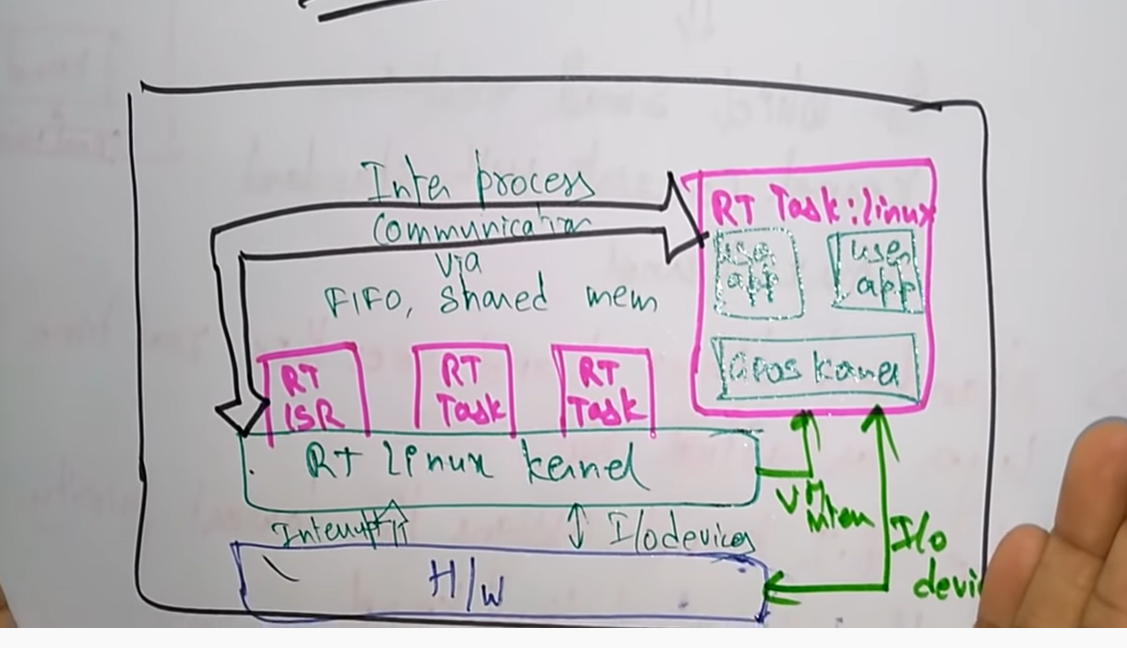 Inter process
communication
via
FIFO, shared mem
RT Task: linux
user
app
user
app
GPOS kernel
RT
ISR
RT
Task
RT
Task
RT linux kernel
Interrupt
I/o devices
H/w
I/o